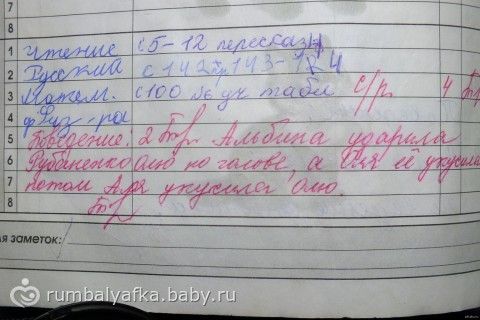 7
8
1 Чтение с 5-12 пересказ 4
2 Русский с 142 пр 143-
3 Матем. с 100 №6 уч табл с/р. 4
4 физ-ра
5 Поведение: 2 Альбина ударила
6 Рубаненко Олю по голове, а Оля её укусила
7 потом Аля укусила Олю.
8
я заметок:
rumbalyafka.baby.ru